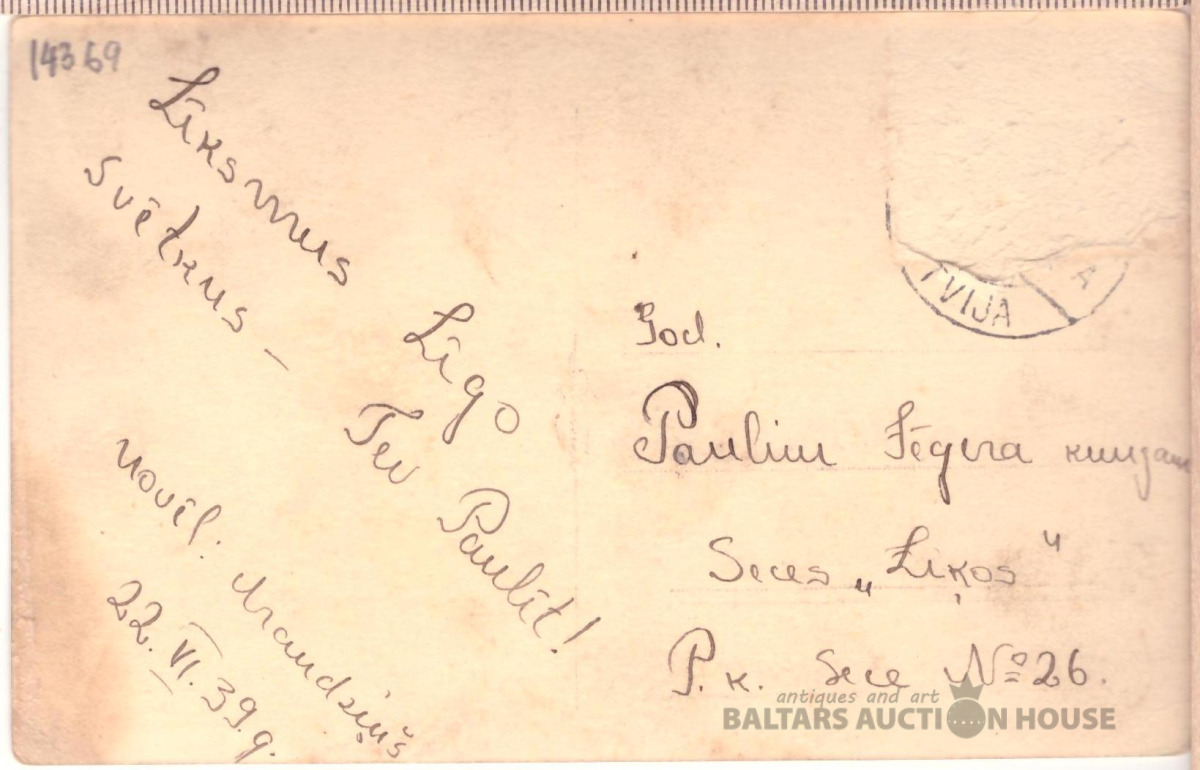 14369
Līksmus Līgo
Svētkus – Tev Paulīt!
novēl: draudziņš
22. VI. 39. g.
TVIJA
A
God.
Paulim Fēgera kungam
Seces „Ļiķos“
P.k. Sece № 26.
antiques and art
BALTARS AUCTION HOUSE